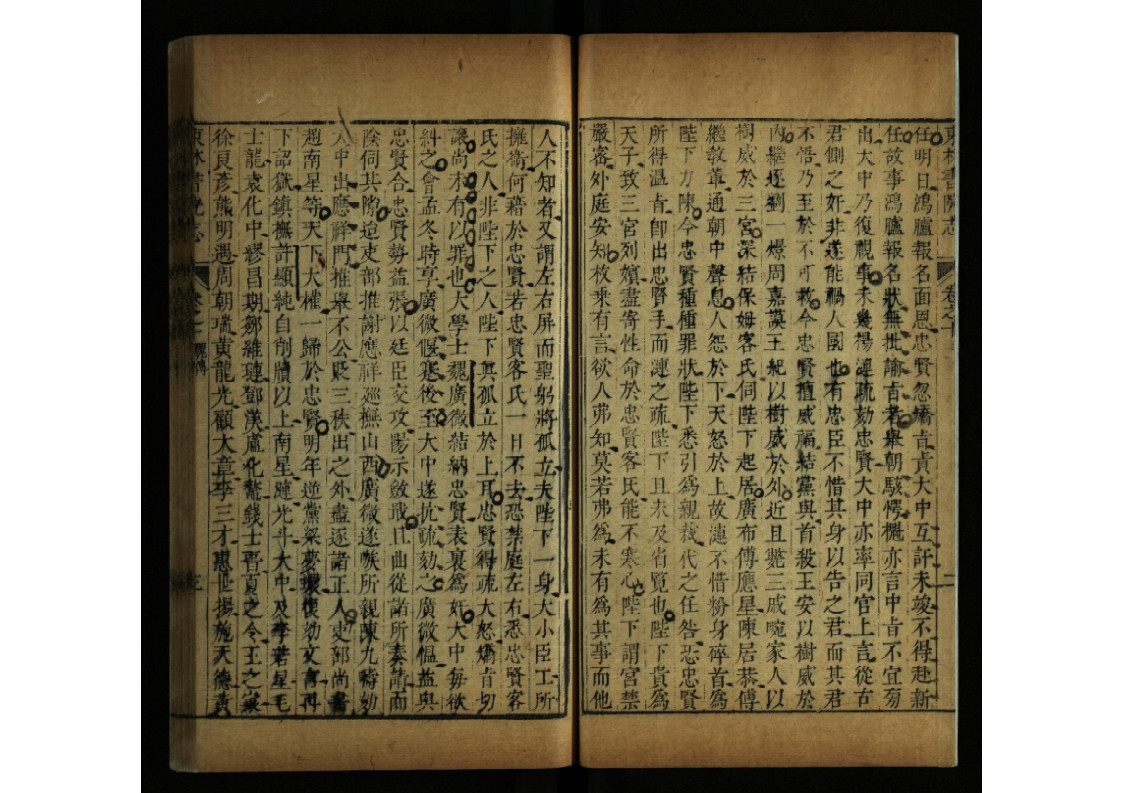 任明日鴻臚報名面恩忠賢忽矯旨責大中互訐未竣不得赴新
任故事鴻臚報名狀無批諭旨者舉朝駭愕櫆亦言中旨不宜芻
出大中乃復視事未幾楊漣疏劾忠賢大中亦率同官上言從古
君側之奸非遂能禍人國也有忠臣不惜其身以告之君而其君
不悟乃至於不可救今忠賢擅威福結黨與首殺王安以樹威於
內繼逐劉一燝周嘉謨王紀以樹威於外近且斃三戚畹家人以
樹威於三宮深結保姆客氏伺陛下起居廣布傅應星陳居恭傅
繼教輩通朝中聲息人怨於下天怒於上故漣不惜粉身碎首為
陛下力陳今忠賢種種罪狀陛下悉引為親裁代之任咎恐忠賢
所得溫旨卽出忠賢手而漣之疏陛下且未及省覽也陛下貴為
天子致三宮列嬪盡寄性命於忠賢客氏能不寒心陛下謂宮禁
嚴密外庭安知枚乘有言欲人弗知莫若弗為未有為其事而他
人不知者又謂左右屏而聖躬將孤立夫陛下一身大小臣工所
擁衛何藉於忠賢若忠賢客氏一日不去恐禁庭左右悉忠賢客
氏之人非陛下之人陛下眞孤立於上耳忠賢得疏大怒矯旨切
讓尚未有以罪也大學士魏廣微結納忠賢表裏為奸大中每欲
糾之會孟冬時享廣微偃蹇後至大中遂抗疏劾之廣微慍益與
忠賢合忠賢勢益張以廷臣交攻陽示斂戢且曲從諸所奏請而
陰伺其隙迨吏部推謝應祥廵撫山西廣微遂嗾所親陳九疇劾
大中出應祥門推舉不公貶三秩出之外盡逐諸正人吏部尚書
趙南星等天下大權一歸於忠賢明年逆黨梁夢環復劾文言再
下詔獄鎮撫許顯純自削牘以上南星漣光斗大中及李若星毛
士龍袁化中繆昌期鄒維璉鄧渼盧化鰲錢士晉夏之令王之寀
徐良彥熊明遇周朝瑞黃龍光顧大章李三才惠世揚施天德黃